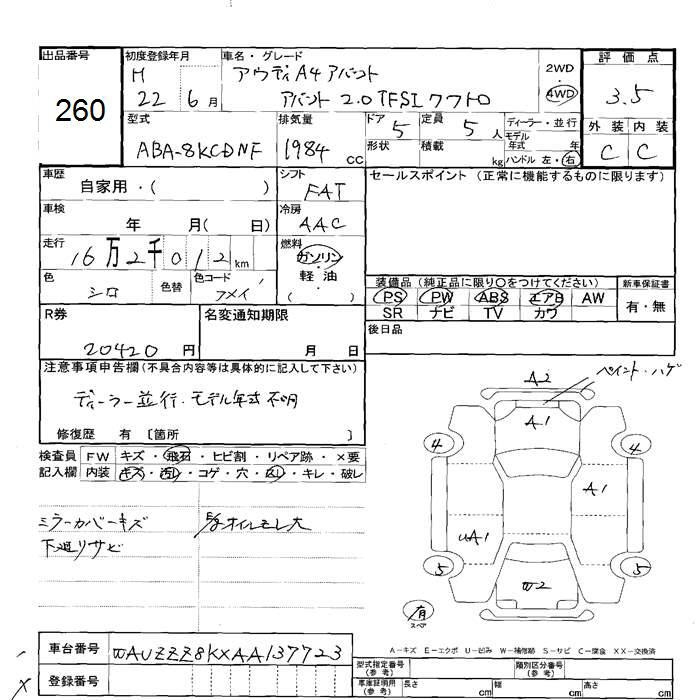 出品番号
260
初度登録年月
H
22 6月
車名・グレード
アウディA4アバント
アバント2.0TFSIクワトロ
2WD
・
4WD
評価点
3.5
型式
ABA-8KCDNF
排気量
1984 cc
ドア 5
定員 5 人
形状
積載 kg
ディーラー・並行
モデル年式 年
ハンドル 左・右
外装 内装
C C
車歴
自家用・( )
シフト
FAT
セールスポイント (正常に機能するものに限ります)
車検
年 月( 日)
冷房
AAC
走行
16万2千012km
燃料
ガソリン
・
軽・油
( )
色
シロ
色替
色コード
装備品(純正品に限り○をつけてください)
新車保証書
PS PW ABS エアB AW
SR ナビ TV カワ
有・無
R券
20420円
名変通知期限
月 日
後日品
注意事項申告欄(不具合内容等は具体的に記入して下さい)
ディーラー並行・モデル年式不明
修復歴 有 〔箇所 〕
検査員 FW キズ・飛石・ヒビ割・リペア跡・×要
記入欄 内装 キズ・汚れ・コゲ・穴・凹・キレ・破レ
ミラーカバーキズ
下廻りサビ
オイルモレ大
A2
ペイント・ハゲ
A1
4 4
A1
A1
5 5
W2
有
スペア
A-キズ E-エクボ U-凹み W-補修跡 S-サビ C-腐食 XX-交換済
車台番号
WAUZZZ8KXAA137723
登録番号
型式指定番号
(参考)
類別区分番号
(参考)
車庫証明用
(参考)
長さ cm
幅 cm
高さ cm